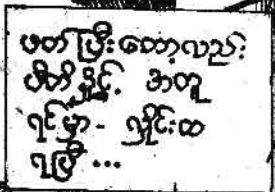 ဖတ်ပြီးတော့လည်း
ပီတိနှင့် အတူ
ရင်မှာ - လှိုင်းထ
ရပြီ ...